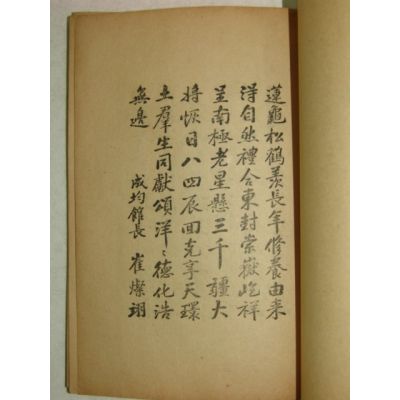 蓮龜松鶴羨長年修養由来
得自然禮合東封崇嶽屹祥
呈南極老星懸三千疆大
將恢日八四辰回克享天環
土羣生同獻頌洋〻德化浩
無邊
成均館長 崔燦翊